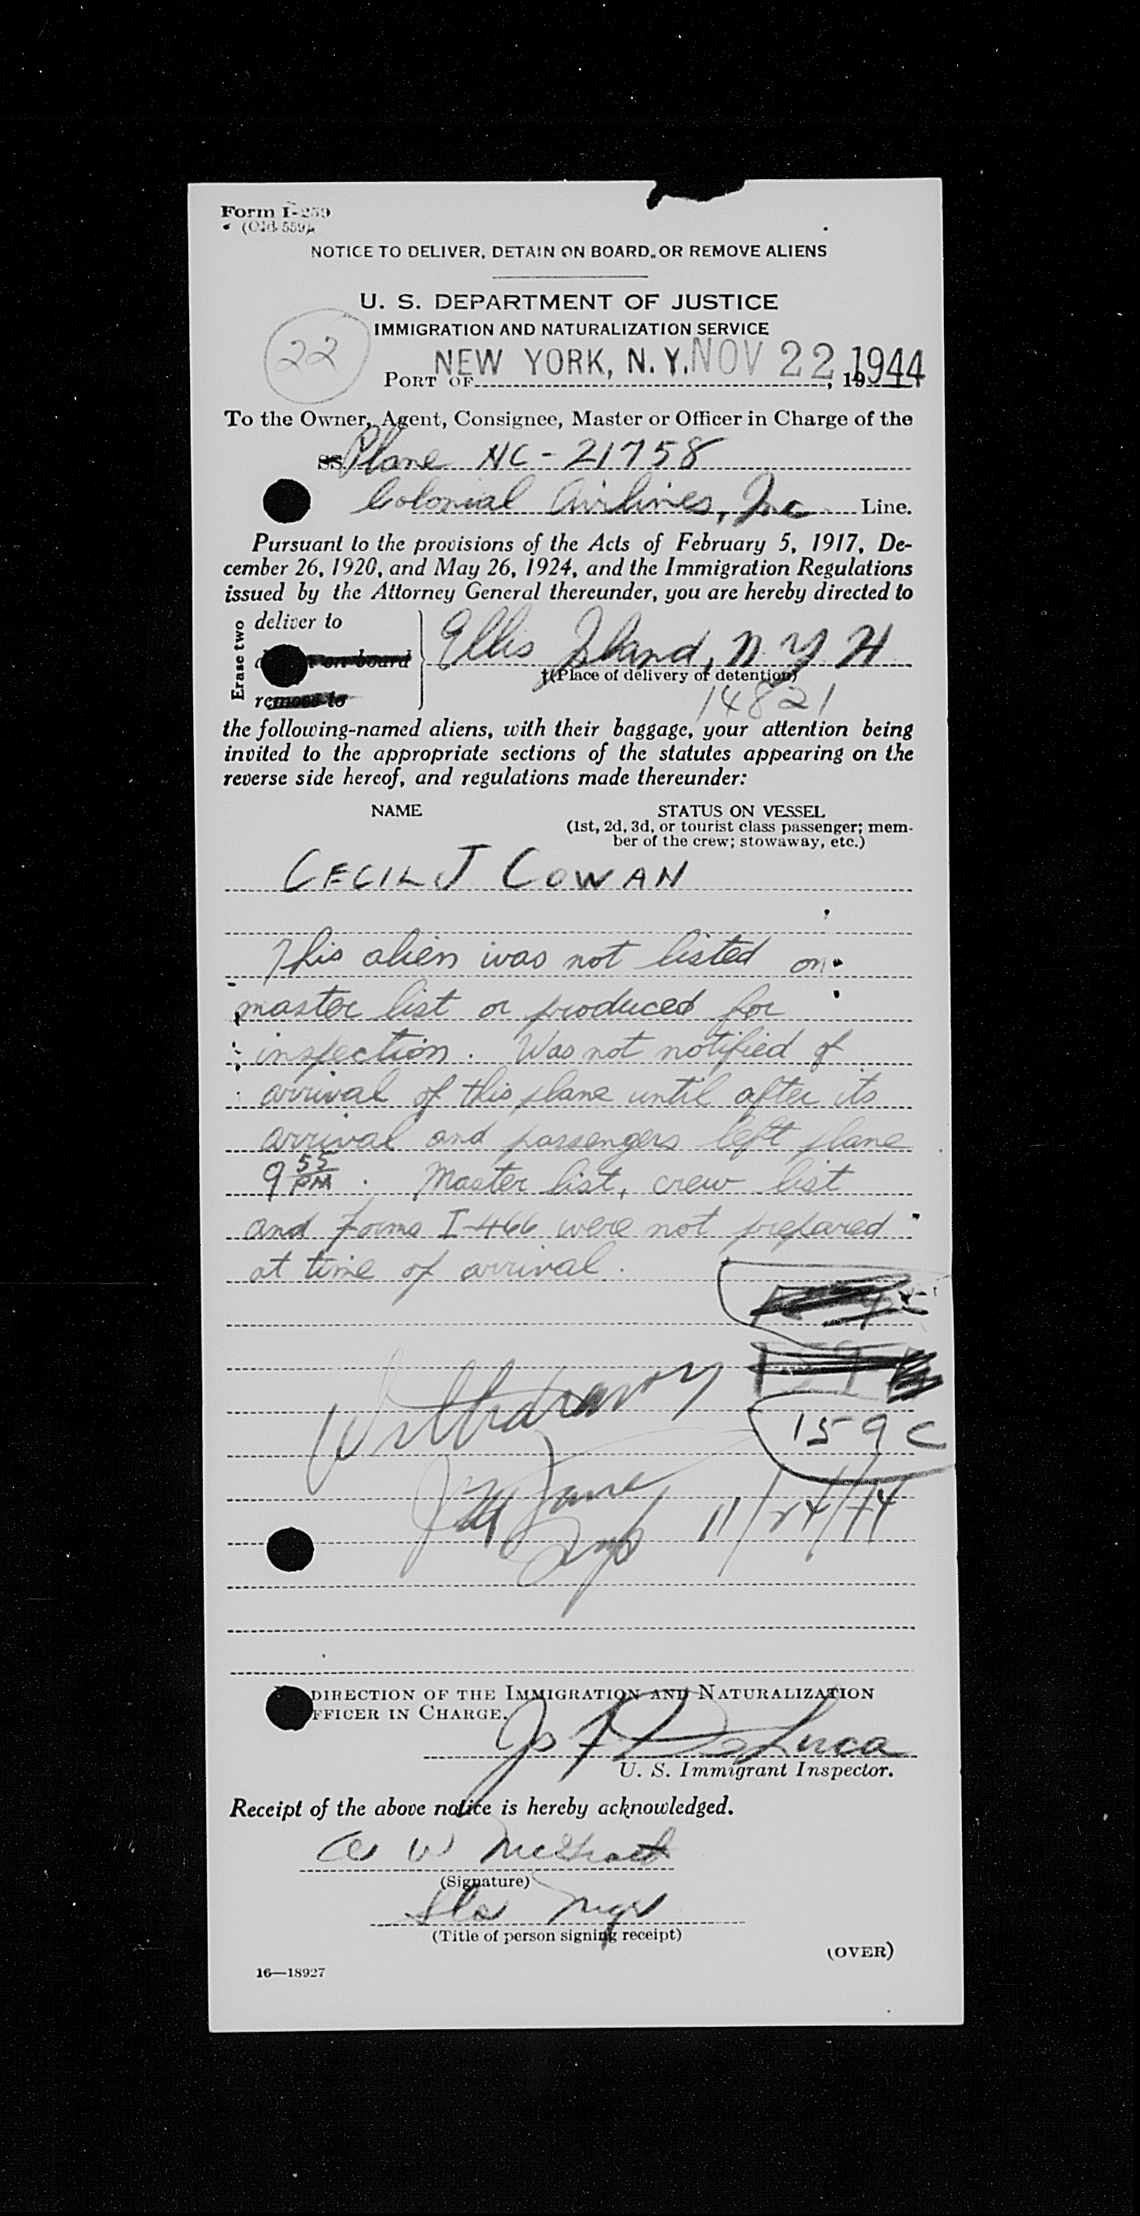 Form I-259
(Old 559)
NOTICE TO DELIVER, DETAIN ON BOARD, OR REMOVE ALIENS
U. S. DEPARTMENT OF JUSTICE
IMMIGRATION AND NATURALIZATION SERVICE
22
NEW YORK, N.Y. NOV 22 1944
PORT OF , 19
To the Owner, Agent, Consignee, Master or Officer in Charge of the
SS Plane NC-21758
Colonial Airlines, Inc. Line.
Pursuant to the provisions of the Acts of February 5, 1917, De-
cember 26, 1920, and May 26, 1924, and the Immigration Regulations
issued by the Attorney General thereunder, you are hereby directed to
Erase two
deliver to
on board
remove to
Ellis Island, N Y H
†(Place of delivery or detention)
14821
the following-named aliens, with their baggage, your attention being
invited to the appropriate sections of the statutes appearing on the
reverse side hereof, and regulations made thereunder:
NAME STATUS ON VESSEL
(1st, 2d, 3d, or tourist class passenger; mem-
ber of the crew; stowaway, etc.)
CECIL J COWAN
This alien was not listed on
master list or produced for
inspection. Was not notified of
arrival of this plane until after its
arrival and passengers left plane
9 55 PM. Master list, crew list
and Forms I-466 were not prepared
at time of arrival.
Withdrawn
159 C
11/24/44
DIRECTION OF THE IMMIGRATION AND NATURALIZATION
FFICER IN CHARGE.
Jos F De Luca
U. S. Immigrant Inspector.
Receipt of the above notice is hereby acknowledged.
W McGrath
(Signature)
Mgr
(Title of person signing receipt)
(OVER)
16—18927